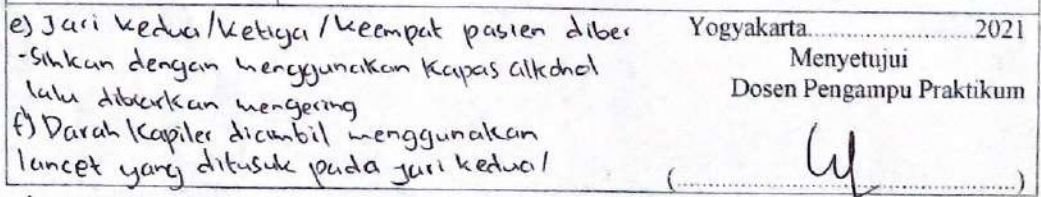 e) Jari kedua/ketiga/keempat pasien diber
-sihkan dengan menggunakan kapas alkohol
lalu dibiarkan mengering
f) Darah kapiler diambil menggunakan
lancet yang ditusuk pada jari kedua/
Yogyakarta..............................2021
Menyetujui
Dosen Pengampu Praktikum
(............................................................)